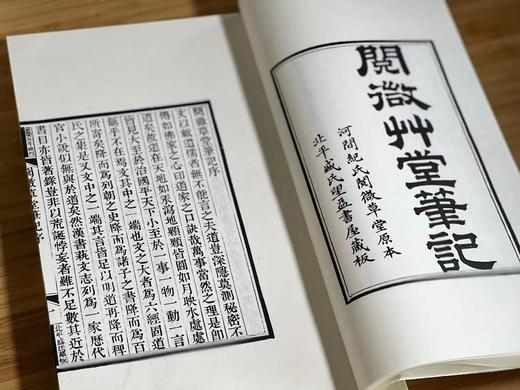 閱微艸堂筆記
河間紀氏閱微草堂原本
北平盛氏望益書屋藏板
閱微草堂筆記序
文以載道儒者無不能言之夫道豈深隱莫測秘密不
傳如佛家之心印道家之口訣哉萬事當然之理是即
道矣故道在天地如汞瀉地顆顆皆圓如月映水處處
皆見大至於治國平天下小至於一事一物一動一言
無乎不在焉文其中之一端也文之大者為六經固道
所寄矣降而為列朝之史降而為諸子之書降而為百
氏之集是又文中之一端其言皆足以明道再降而稗
官小說似無與於道矣然漢書藝文志列為一家歷代
書目亦皆著錄豈非以荒誕悖妄者雖不足數其近於
閱微草堂筆記序